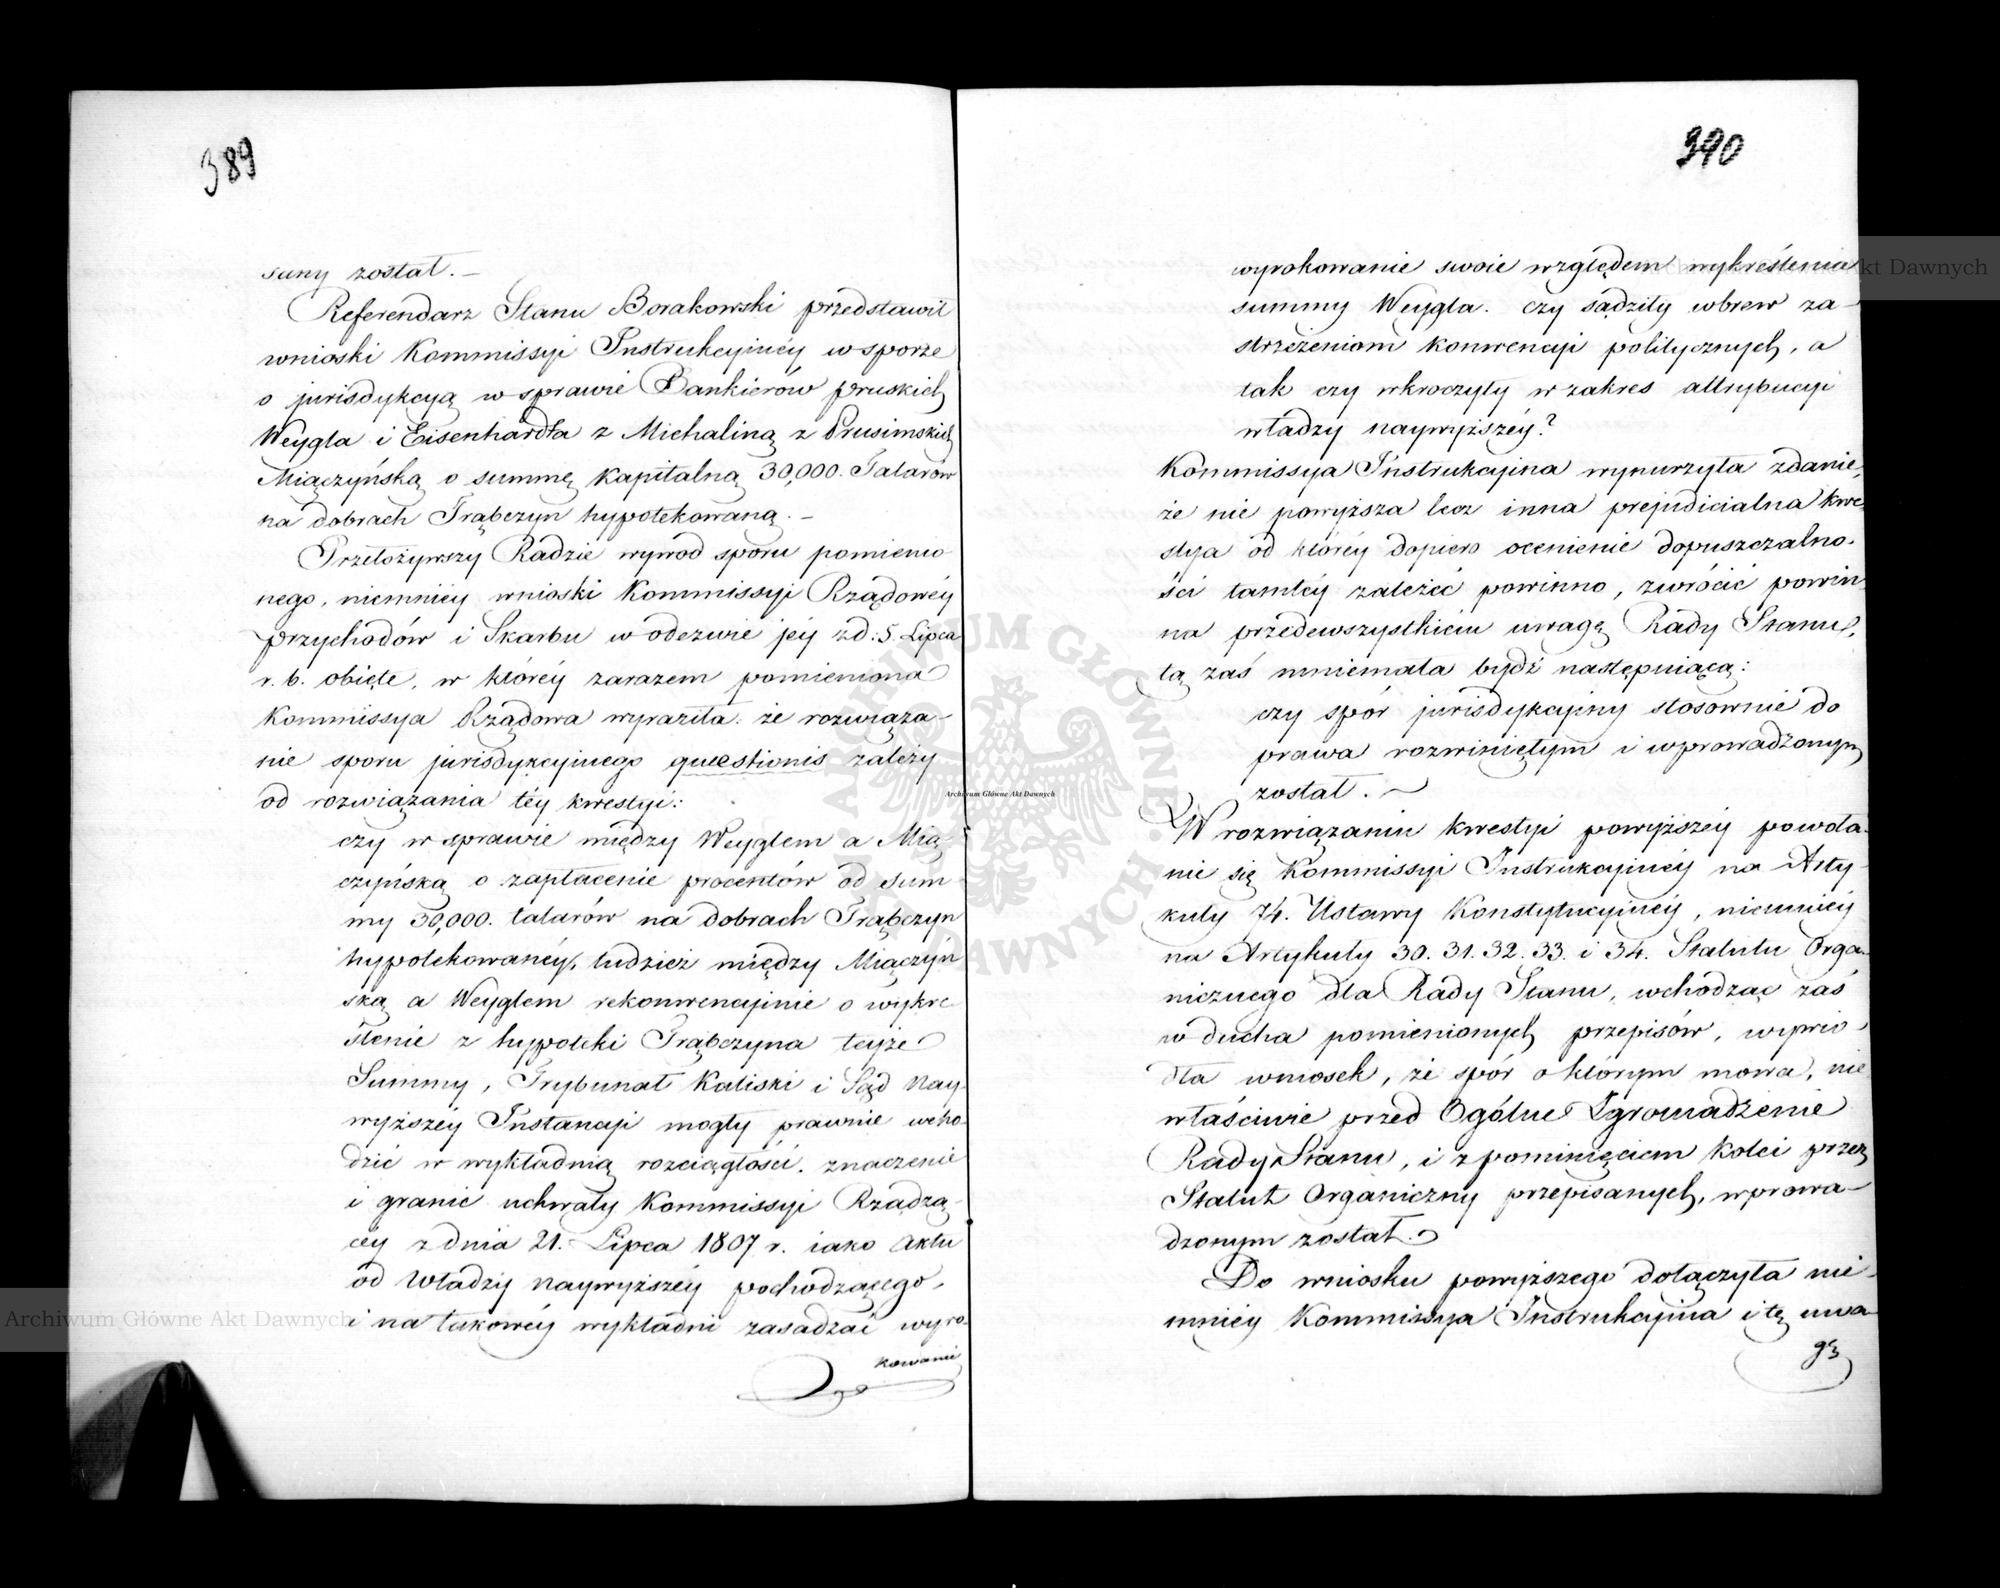 389
sany został. —
Referendarz Stanu Borakowski przedstawił
wnioski Kommissyi Instrukcyinéy w sporze
o jurisdykcyą w sprawie Bankierów pruskich
Weygla i Eisenhardta z Michaliną z Prusimskich
Miączyńską o summę kapitalną 30,000. Talarów
na dobrach Trąbczyn hypotekowaną. —
Przełożywszy Radzie wywod sporu pomienio
nego, niemniéy wnioski Kommissyi Rządowéy
przychodów i Skarbu w odezwie jéy z d: 5. Lipca
r. b. obięte, w któréy zarazem pomieniona
Kommissya Rządowa wyraziła: że rozwiąza-
nie sporu jurisdykcyinego quaestionis zależy
od rozwiązania téy kwestyi:
czy w sprawie między Weyglem a Mią
czyńską o zapłacenie procentów od Sum
my 30,000. talarów na dobrach Trąbczyn
hypotekowanéy, tudzież między Miączyń
ską a Weyglem rekonwencyinie o wykre
ślenie z hypoteki Trąbczyna teyże
Summy, Trybunał Kaliski i Sąd Nay
wyższéy Instancyi mogły prawnie wcho
dzić w wykładnią rozciągłości, znaczenie
i granic uchwały Kommissyi Rządzą-
céy z dnia 21. Lipca 1807 r. iako Aktu
od Władzy Naywyższéy pochodzącego,
i na takowéy wykładni zasadzać wyro-
kowanie
390
wyrokowanie swoie względem wykreślenia
summy Weygla. czy sądziły wbrew za-
strzeżeniom konwencyi politycznych, a
tak czy wkroczyły w zakres attrybucyi
władzy naywyższéy?
Kommissya Instrukcyina wynurzyła zdanie,
że nie powyższa lecz inna prejudicialna kwe
stya od któréy dopiero ocenienie dopuszczalno-
ści tamtéy zależéć powinno, zwrócić powin
na przedewszystkiém uwagę Rady Stanu,
tą zaś mniemała bydź następuiącą:
czy spór jurisdykcyiny stosownie do
prawa rozwiniętym i wprowadzonym
został. —
W rozwiązaniu kwestyi powyższéy powoła-
nie się Kommissyi Instrukcyinéy na Arty-
kuły 74. Ustawy Konstytucyinéy, niemniéy
na Artykuły 30. 31. 32. 33. i 34. Statutu Orga-
nicznego dla Rady Stanu, wchodząc zaś
w ducha pomienionych przepisów, wywio-
dła wniosek, że spór o którym mowa, nie
właściwie przed Ogólne Zgromadzenie
Rady Stanu, i z pominięciem kolei przez
Statut Organiczny przepisanych, wprowa-
dzonym został.
Do wniosku powyższego dołączyła nie-
mniéy Kommissya Instrukcyina i tę uwa-
gę
Archiwum Główne Akt Dawnych
Akt Dawnych
ARCHIWUM GŁÓWNE AKT DAWNYCH
Archiwum Główne Akt Dawnych